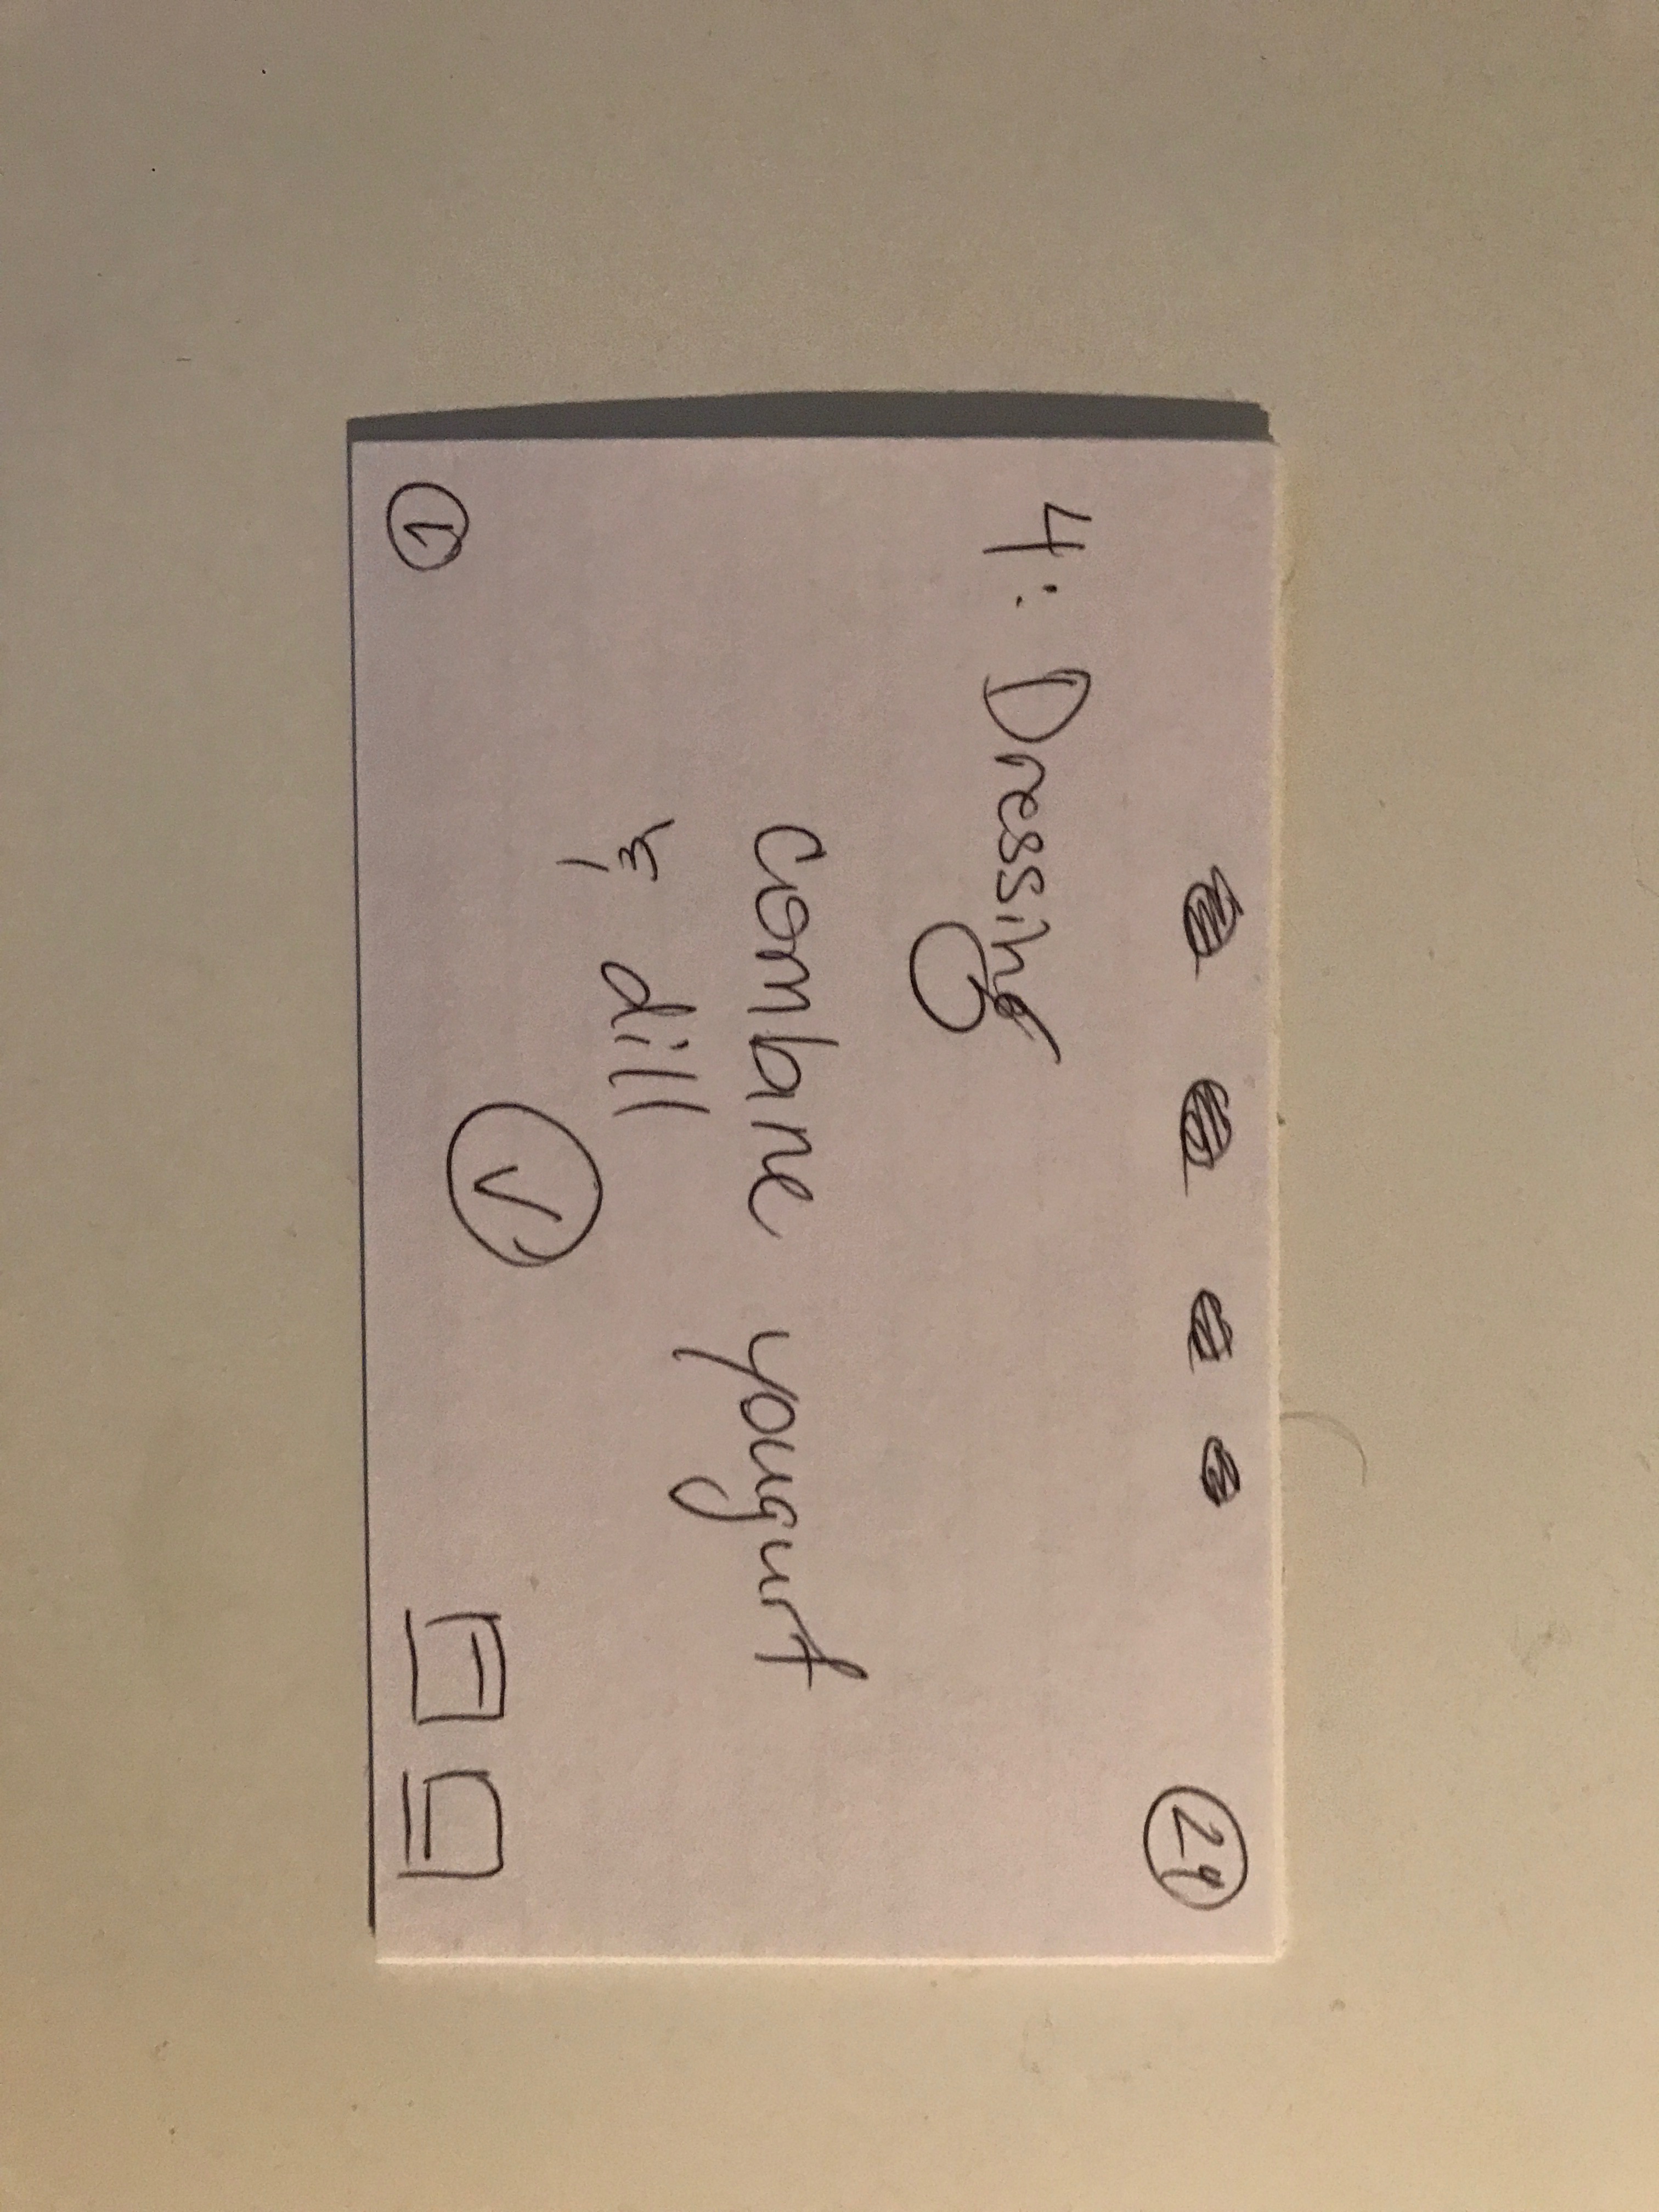 29
4: Dressing
combine yougurt
& dill
1